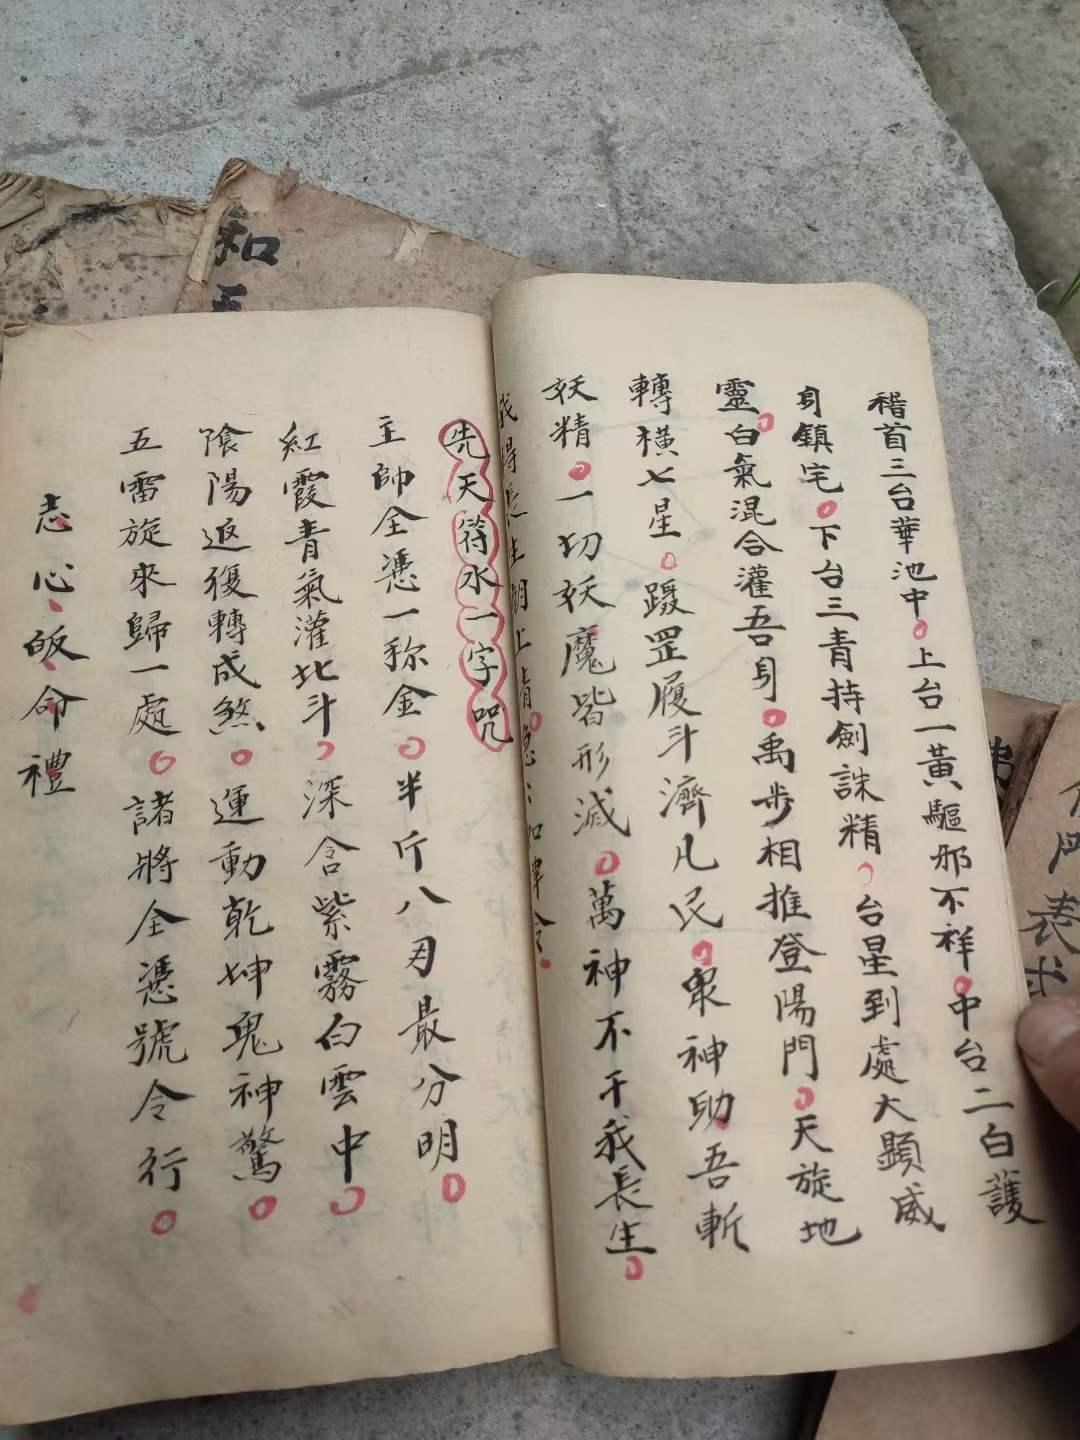 稽首三台華池中上台一黃驅邪不祥中台二白護
身鎮宅下台三青持劍誅精台星到處大顯威
靈白氣混合灌吾身禹步相推登陽門天旋地
轉橫七星蹑罡履斗濟凡民眾神助吾斬
妖精一切妖魔皆形滅萬神不干我長生
我得長生朝上清急：如律令
先天符水一字咒
主帥全憑一称金半斤八月最分明
紅霞青氣灌北斗深含紫霧白雲中
陰陽返復轉成煞運動乾坤鬼神驚
五雷旋來歸一處諸將全憑號令行
志心皈命禮
和
門表